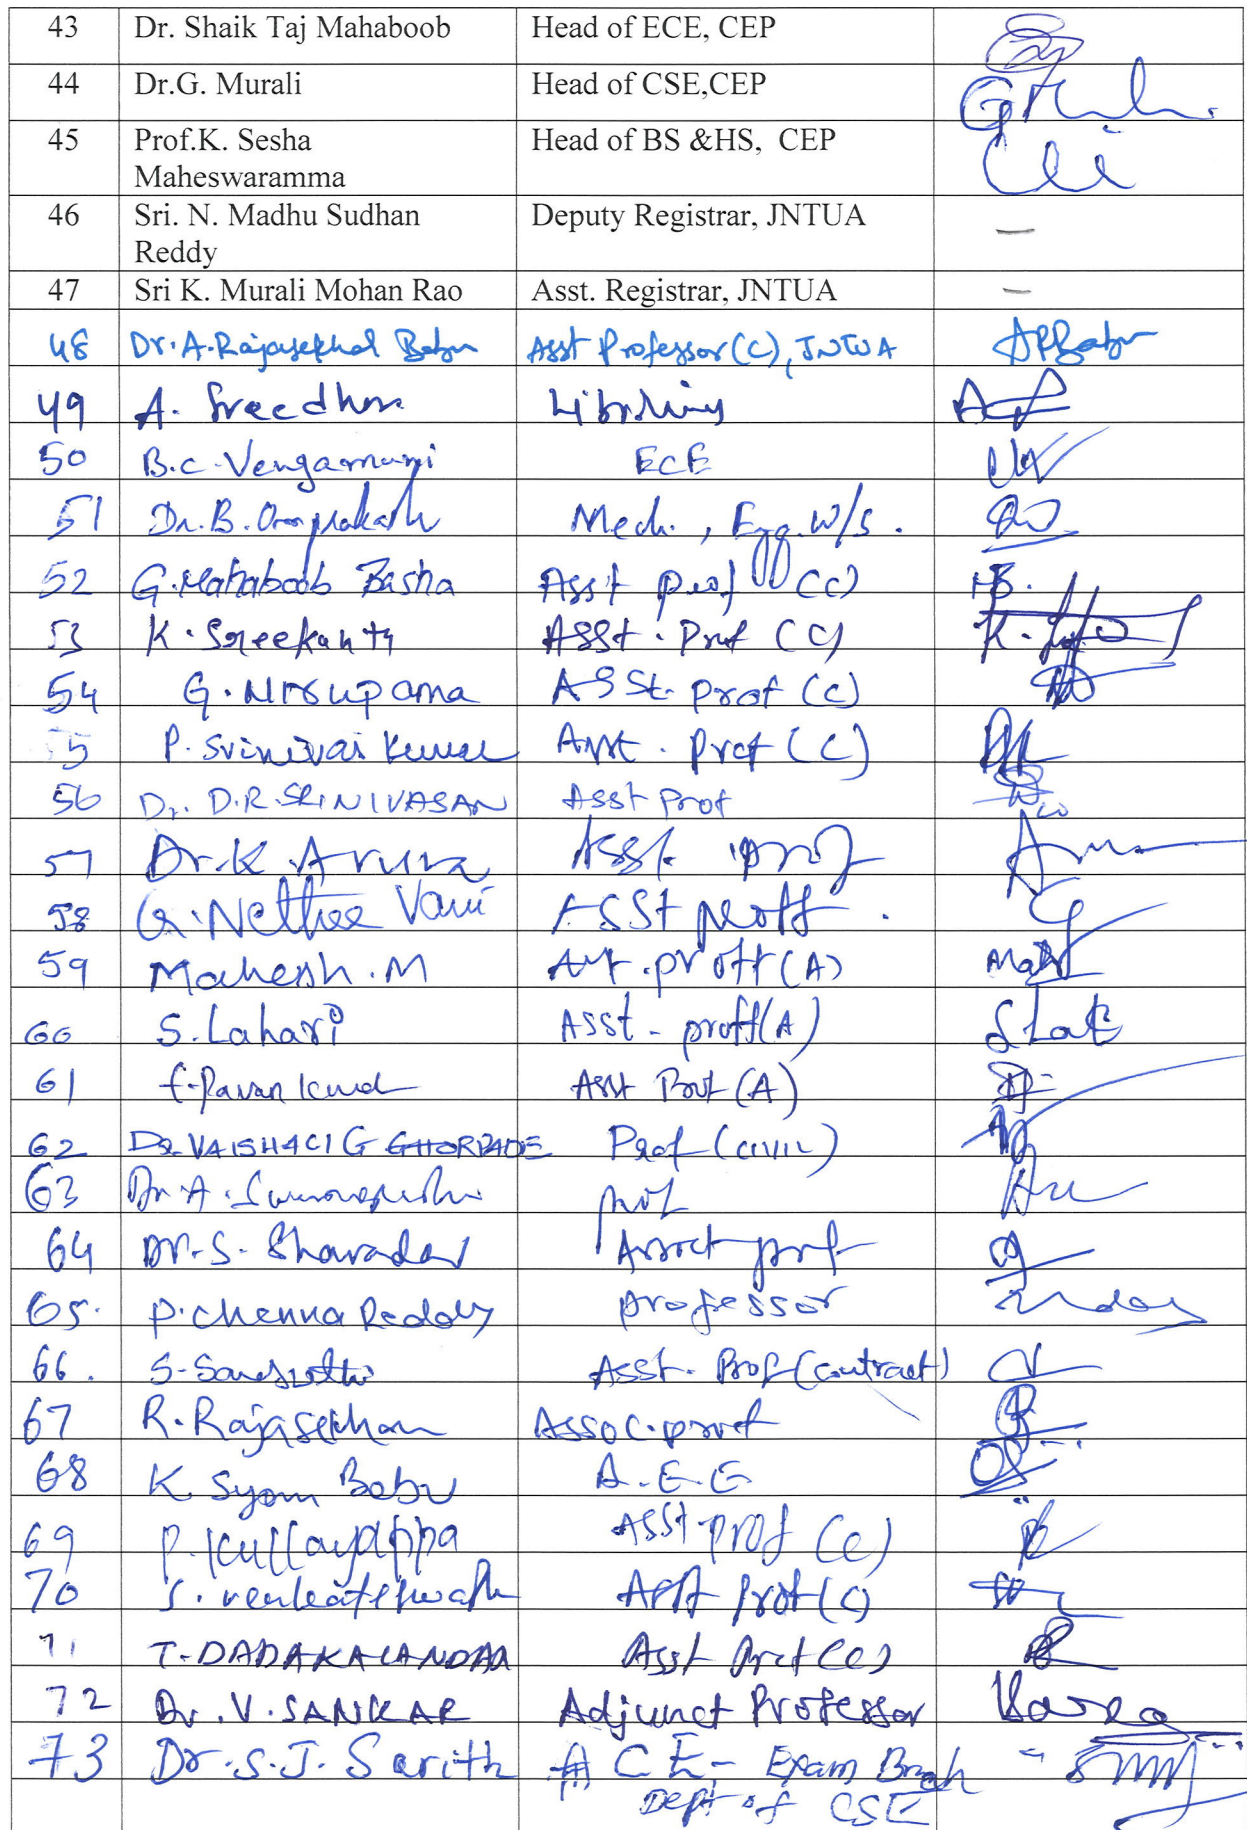 43 Dr. Shaik Taj Mahaboob Head of ECE, CEP
44 Dr.G. Murali Head of CSE,CEP
45 Prof.K. Sesha Head of BS &HS, CEP
Maheswaramma
46 Sri. N. Madhu Sudhan Deputy Registrar, JNTUA –
Reddy
47 Sri K. Murali Mohan Rao Asst. Registrar, JNTUA –
48 Dr.A.Rajasekhar Babu Asst Professor(C), JNTUA
49 A. Sreedhar
50 B.C. Vengamuni ECE
51 Dr.B.Omprakash Mech., Egg. W/s.
52 G.Mahaboob Basha Asst prof (C)
53 K. Sreekanth Asst. Prof (C)
54 G. Nirupama Asst. prof (C)
55 P. Srinivas Kumar Asst. Prof (C)
56 Dr. D.R. SRINIVASAN Asst Prof
57 Dr.K. Aruna Asst. prof
58 G. Nethee Vani Asst proff.
59 Mahesh.M Asst. proff (A)
60 S. Lahari Asst. proff(A)
61 Pavan Asst Prof (A)
62 Dr. VAISHALI G GHORPADE Prof (CIVIL)
63 Dr. A. prof
64 Dr. S. Sharada Assoct prof
65. P. Chenna Reddy professor
66. S. Asst. Prof (contract)
67 R. Rajasekhar Assoc. prof
68 K. Syam Babu A.E.E
69 P. Kullayappa Asst prof (C)
70 S. Asst prof (C)
71 T. DADAKALANDAR Asst Prof (C)
72 Dr. V. SANKAR Adjunct Professor
73 Dr. S.J. Sarith ACE- Exam Branch
Dept of CSE